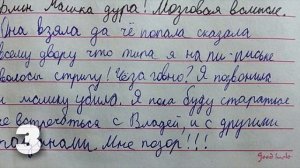 Блин Машка дура! Мозговая
Она взяла да чё попала сказала
всему двору что типа я на пи-письке
волосы стригу! Чё за говно? Я позвонила
и молику удила. Я пока буду стараться
не встречаться с Владей, и с другими
пацанами. Мне позор!!!
3
good looks